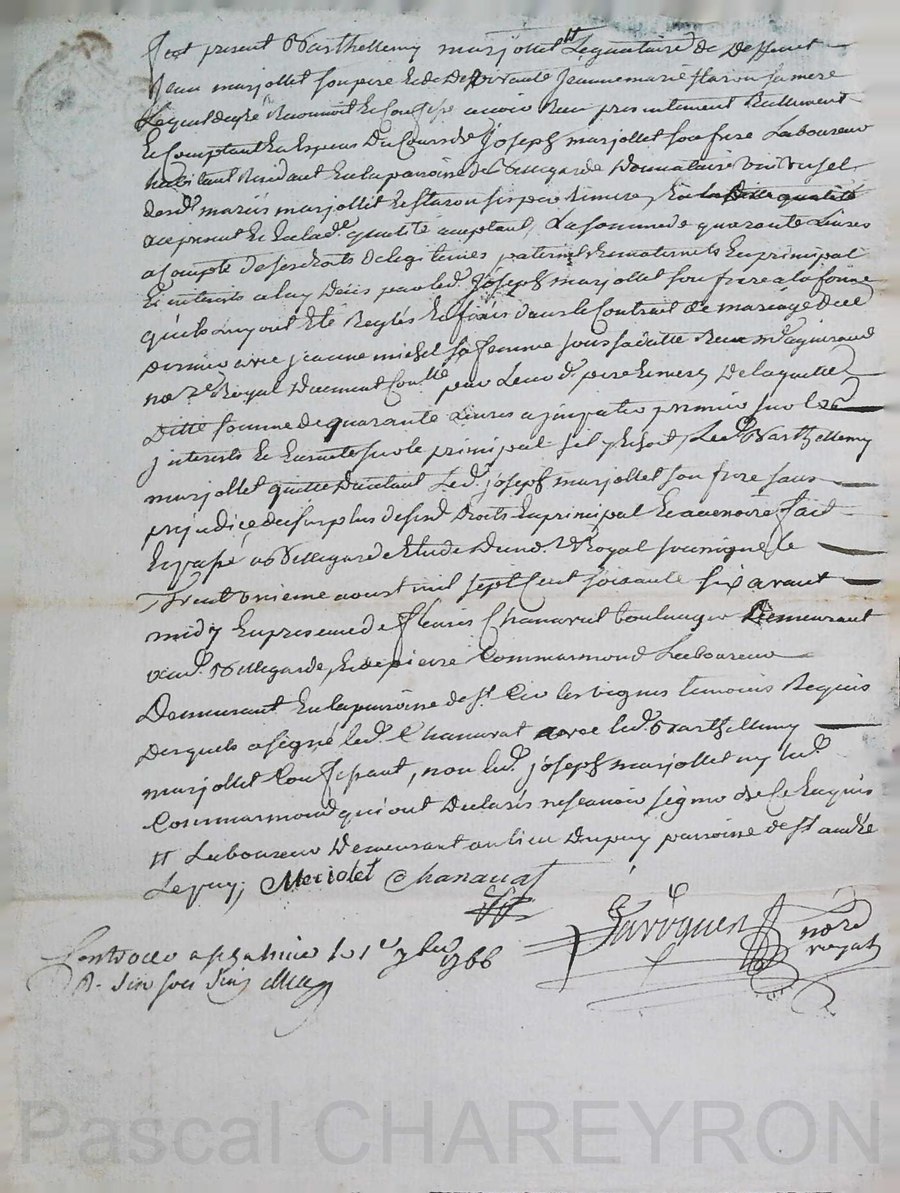 fut present Barthellemy marjollet tt Legataire de Deffunt
Jean marjollet son pere Et de Deffunte Jeanne marie flaron sa mere
Lequel de gré Reconnoit Et Confesse avoir Reu presentement Reellement
Et Comptant En Especes Du Cours de Joseph marjollet son frere Laboureur
habitant Residant En la paroisse de Bellegarde Donnataire universel
desd. mariés marjollet Et flaron ses pere Et mere, En la Ditte qualité
cy present Et En lad.e qualité aceptant, La somme de quarante Livres
a Compte de ses droits de legitimes paternels Et maternels En principal
Et interets a luy Deus par led. Joseph marjollet son frere a la forme
quils luy ont Eté Reglés Et fixés dans le Contrat de mariage de ce
dernier avec jeanne michel sa femme sous sa datte Reçu m.e
no.re Royal Duement Con.llé par Leurd. pere Et mere, De laquelle
Ditte somme de quarante Livres a jmputer premier sur les
jnterets Et Ensuite sur le principal s'il y Echoit, Led. Barthellemy
marjollet quitte D'autant Led. joseph marjollet son frere sans
prejudice du surplus de sesd. Droits En principal Et accessoire, fait
Et passé a Bellegarde Etude Dud. no.re Royal soussigné le
Trente unieme aoust mil sept cent soixante six avant
midy En presence de fleuris Chanavat boulanger Demeurant
aud. Bellegarde, Et de pierre Commarmond Laboureur
Demeurant En la paroisse de St. Cir les vignes temoins Requis
desquels a signé led. Chanavat avec led. Barthellemy
marjollet Confessant, non led. joseph marjollet ny led.
Commarmond qui ont Declarés ne scavoir signer de ce Enquis
tt Laboureur Demeurant au lieu Dupuy paroisse de St. andré
Le puy; Meriolet Chanavat
no.re
royal
Controlé a le 1.er 7bre 1766
R. six sols
Pascal CHAREYRON